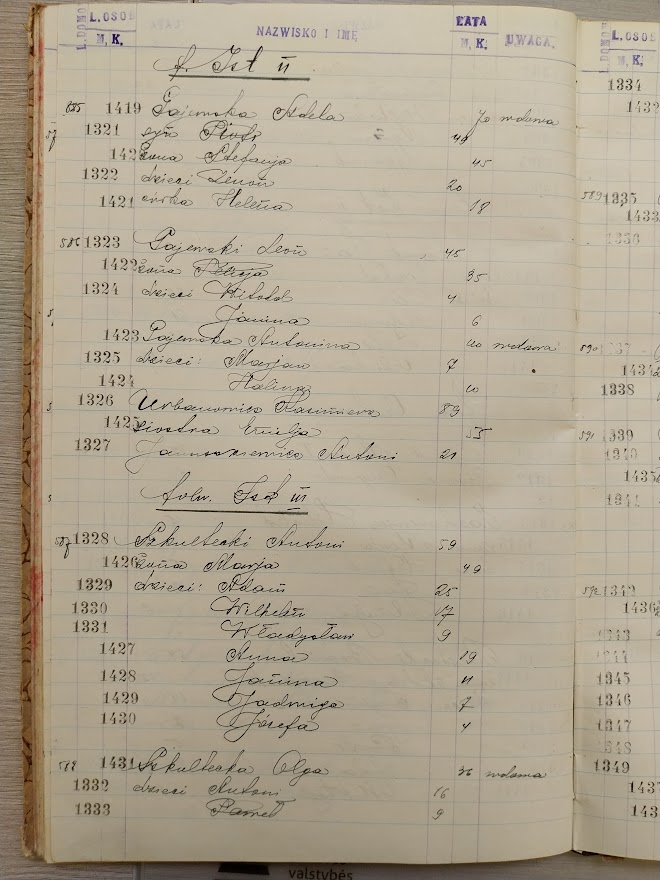 L. DOMÓ L. OSOB NAZWISKO I IMĘ LATA
M. K. M. K. UWAGA.
f. Ist II
585 1419 Gajewska Adela 70 wdowa
1321 syn Piotr 49
1422 żona Stefanja 45
1322 dzieci Zenon 20
1421 córka Helena 18
586 1323 Gajewski Leon 45
1422 żona Felicja 35
1324 dzieci Witold 4
Janina 6
1423 Gajewska Antonina 40 wdowa
1325 dzieci: Marjan 7
1424 Halina 10
1326 Kazimierz 89
1425 siostra Emilja 55
1327 Antoni 21
folw. Ist III
587 1328 Szkultecki Antoni 59
1426 żona Marja 49
1329 dzieci: Adam 25
1330 Wilhelm 17
1331 Władysław 9
1427 Anna 19
1428 Janina 11
1429 Jadwiga 7
1430 Józefa 4
588 1431 Szkultecka Olga 36 wdowa
1332 dzieci Antoni 16
1333 Paweł 9
L. DOMÓ L. OSOB
M. K.
1334
1432
589 1335
1433
1336
590 1337
1434
1338
591 1339
1340
1435
1341
592 1342
1436
1343
1344
1345
1346
1347
1348
1349
valstybės